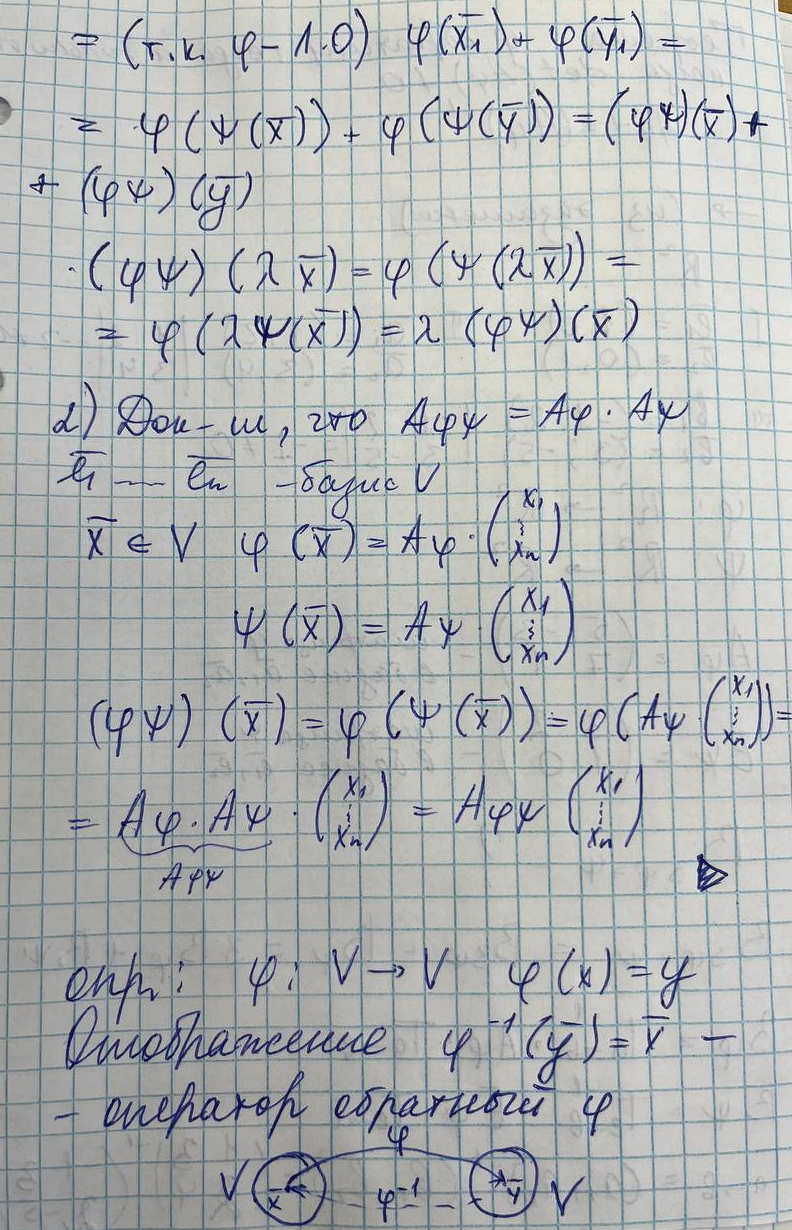 = (т.к. φ - Л.О) φ(x̄₁) + φ(ȳ₁) =
= φ(ψ(x̄)) + φ(ψ(ȳ)) = (φψ)(x̄) +
+ (φψ)(ȳ)
·(φψ)(λx̄) = φ(ψ(λx̄)) =
= φ(λψ(x̄)) = λ(φψ)(x̄)
2) Док-ем, что Aφψ = Aφ · Aψ
ē₁ ---- ēₙ - базис V
x̄ ∈ V φ(x̄) = Aφ · (x₁ ⋮ xₙ)
ψ(x̄) = Aψ · (x₁ ⋮ xₙ)
(φψ)(x̄) = φ(ψ(x̄)) = φ(Aψ · (x₁ ⋮ xₙ)) =
= Aφ · Aψ · (x₁ ⋮ xₙ) = Aφψ (x₁ ⋮ xₙ)
Aφψ
опр: φ: V → V φ(x) = y
Отображение φ⁻¹(ȳ) = x̄ -
- оператор обратный φ
φ
V x̄ φ⁻¹ ȳ V